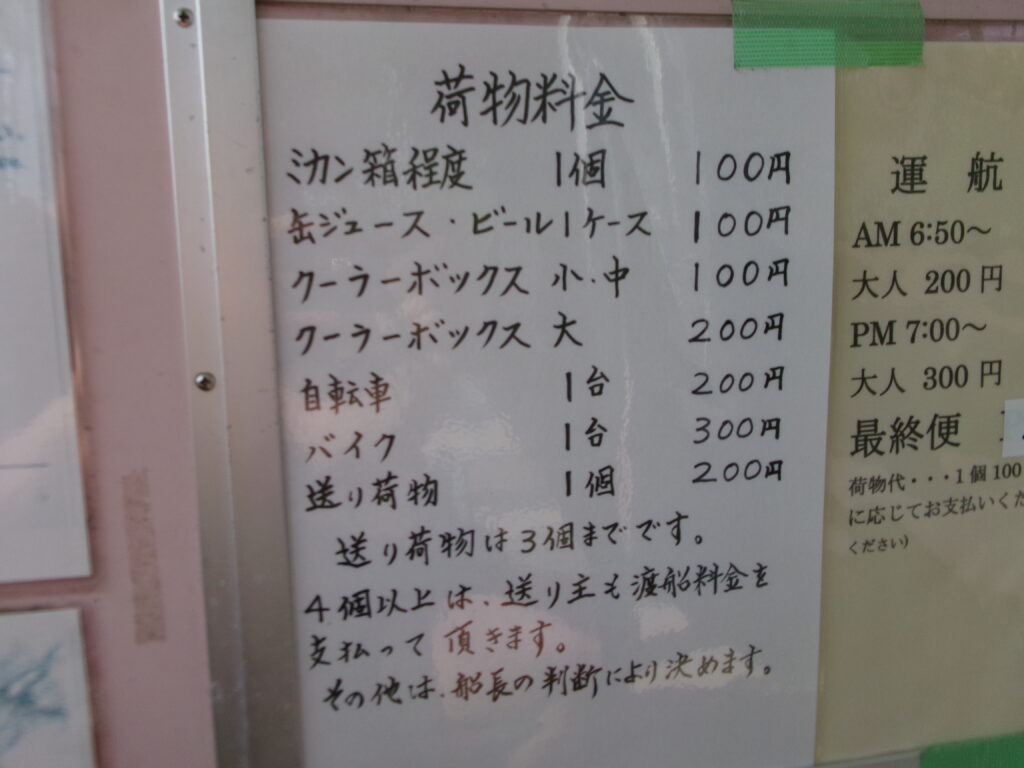 荷物料金
ミカン箱程度 1個 100円
缶ジュース・ビール1ケース 100円
クーラーボックス 小・中 100円
クーラーボックス 大 200円
自転車 1台 200円
バイク 1台 300円
送り荷物 1個 200円
送り荷物は3個までです。
4個以上は、送り主も渡船料金を
支払って頂きます。
その他は、船長の判断により決めます。
運航
AM 6:50～
大人 200円
PM 7:00～
大人 300円
最終便
荷物代・・・1個100
に応じてお支払いくだ
ください)